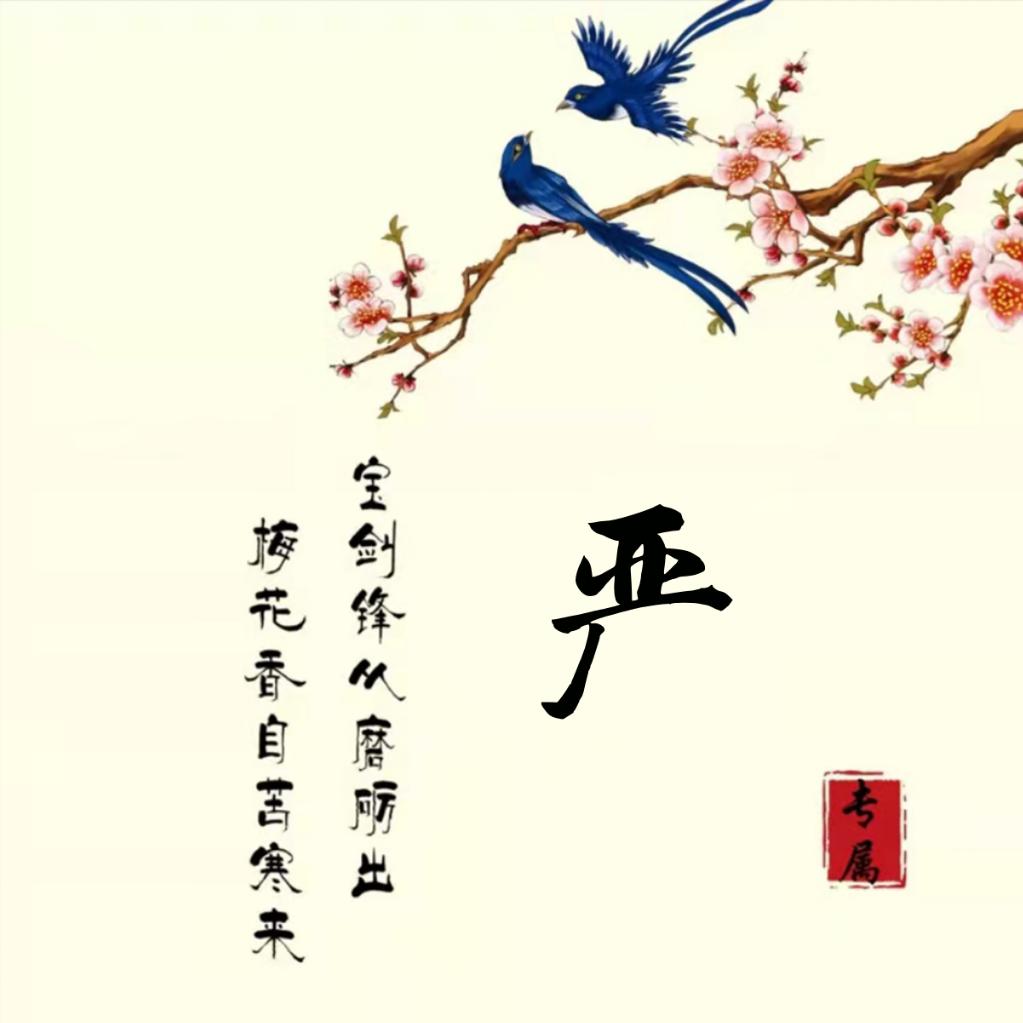 严
专属
宝剑锋从磨砺出
梅花香自苦寒来